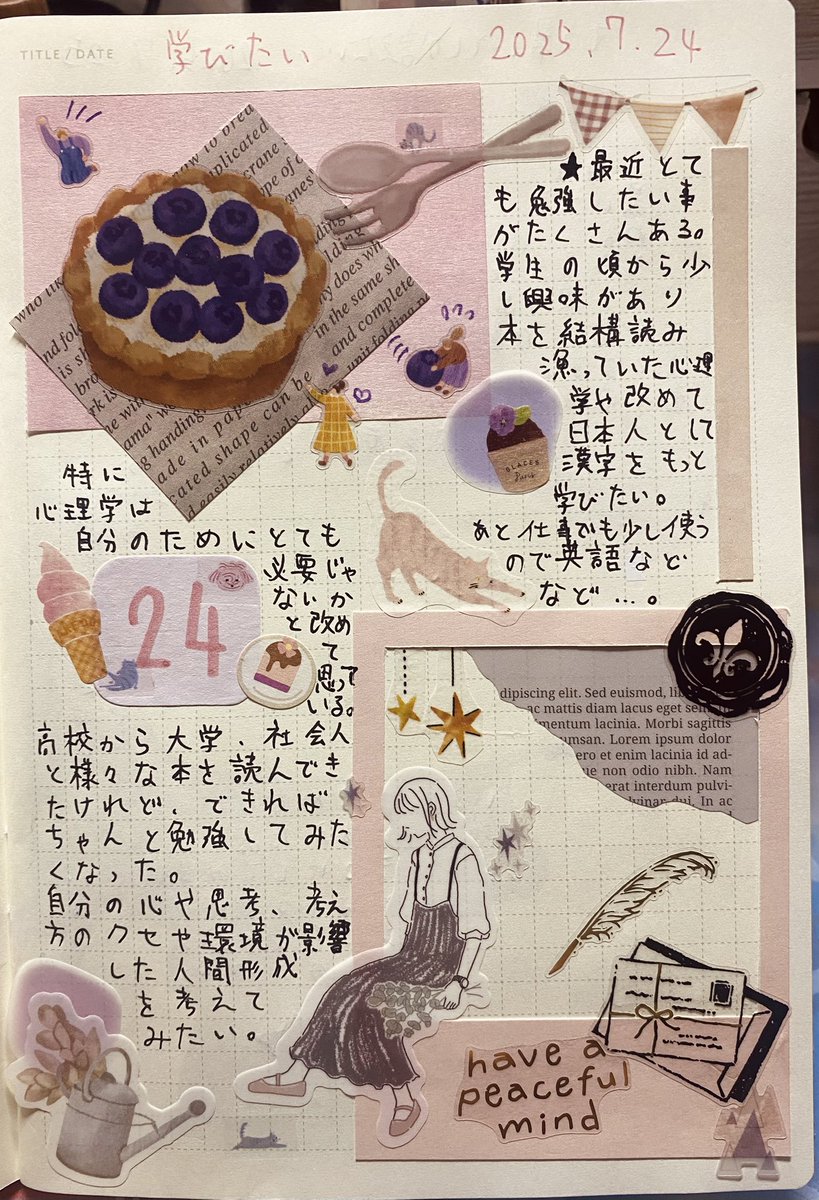 TITLE / DATE
学びたい / 2025.7.24
★最近とて
も勉強したい事
がたくさんある。
学生の頃から少
し興味があり
本を結構読み
漁っていた心理
学や改めて
日本人として
漢字をもっと
学びたい。
あと仕事でも少し使う
ので英語など
など…。
特に
心理学は
自分のためにとても
必要じゃ
ないか
と改め
て
思って
いる。
24
高校から大学、社会人
と様々な本を読んでき
たけれど、できれば
ちゃんと勉強してみた
くなった。
自分の心や思考、考え
方のクセや環境が影響
した人間形成
を考えて
みたい。
how to brea
complicated
crane
type of
building
why does
in the same sh
and complete
unit folding
who
and fol
is
made in pap
shape can be
easily relatively
handing
GLACES
Paris
dipiscing elit. Sed euismod, li
ac mattis diam lacus eget sem
mentum lacinia. Morbi sagittis
umsan. Lorem ipsum dolor
ero et enim lacinia id ad-
ue non odio nibh. Nam
erat interdum pulvi-
lvinar dui. In ac
have a
peaceful
mind